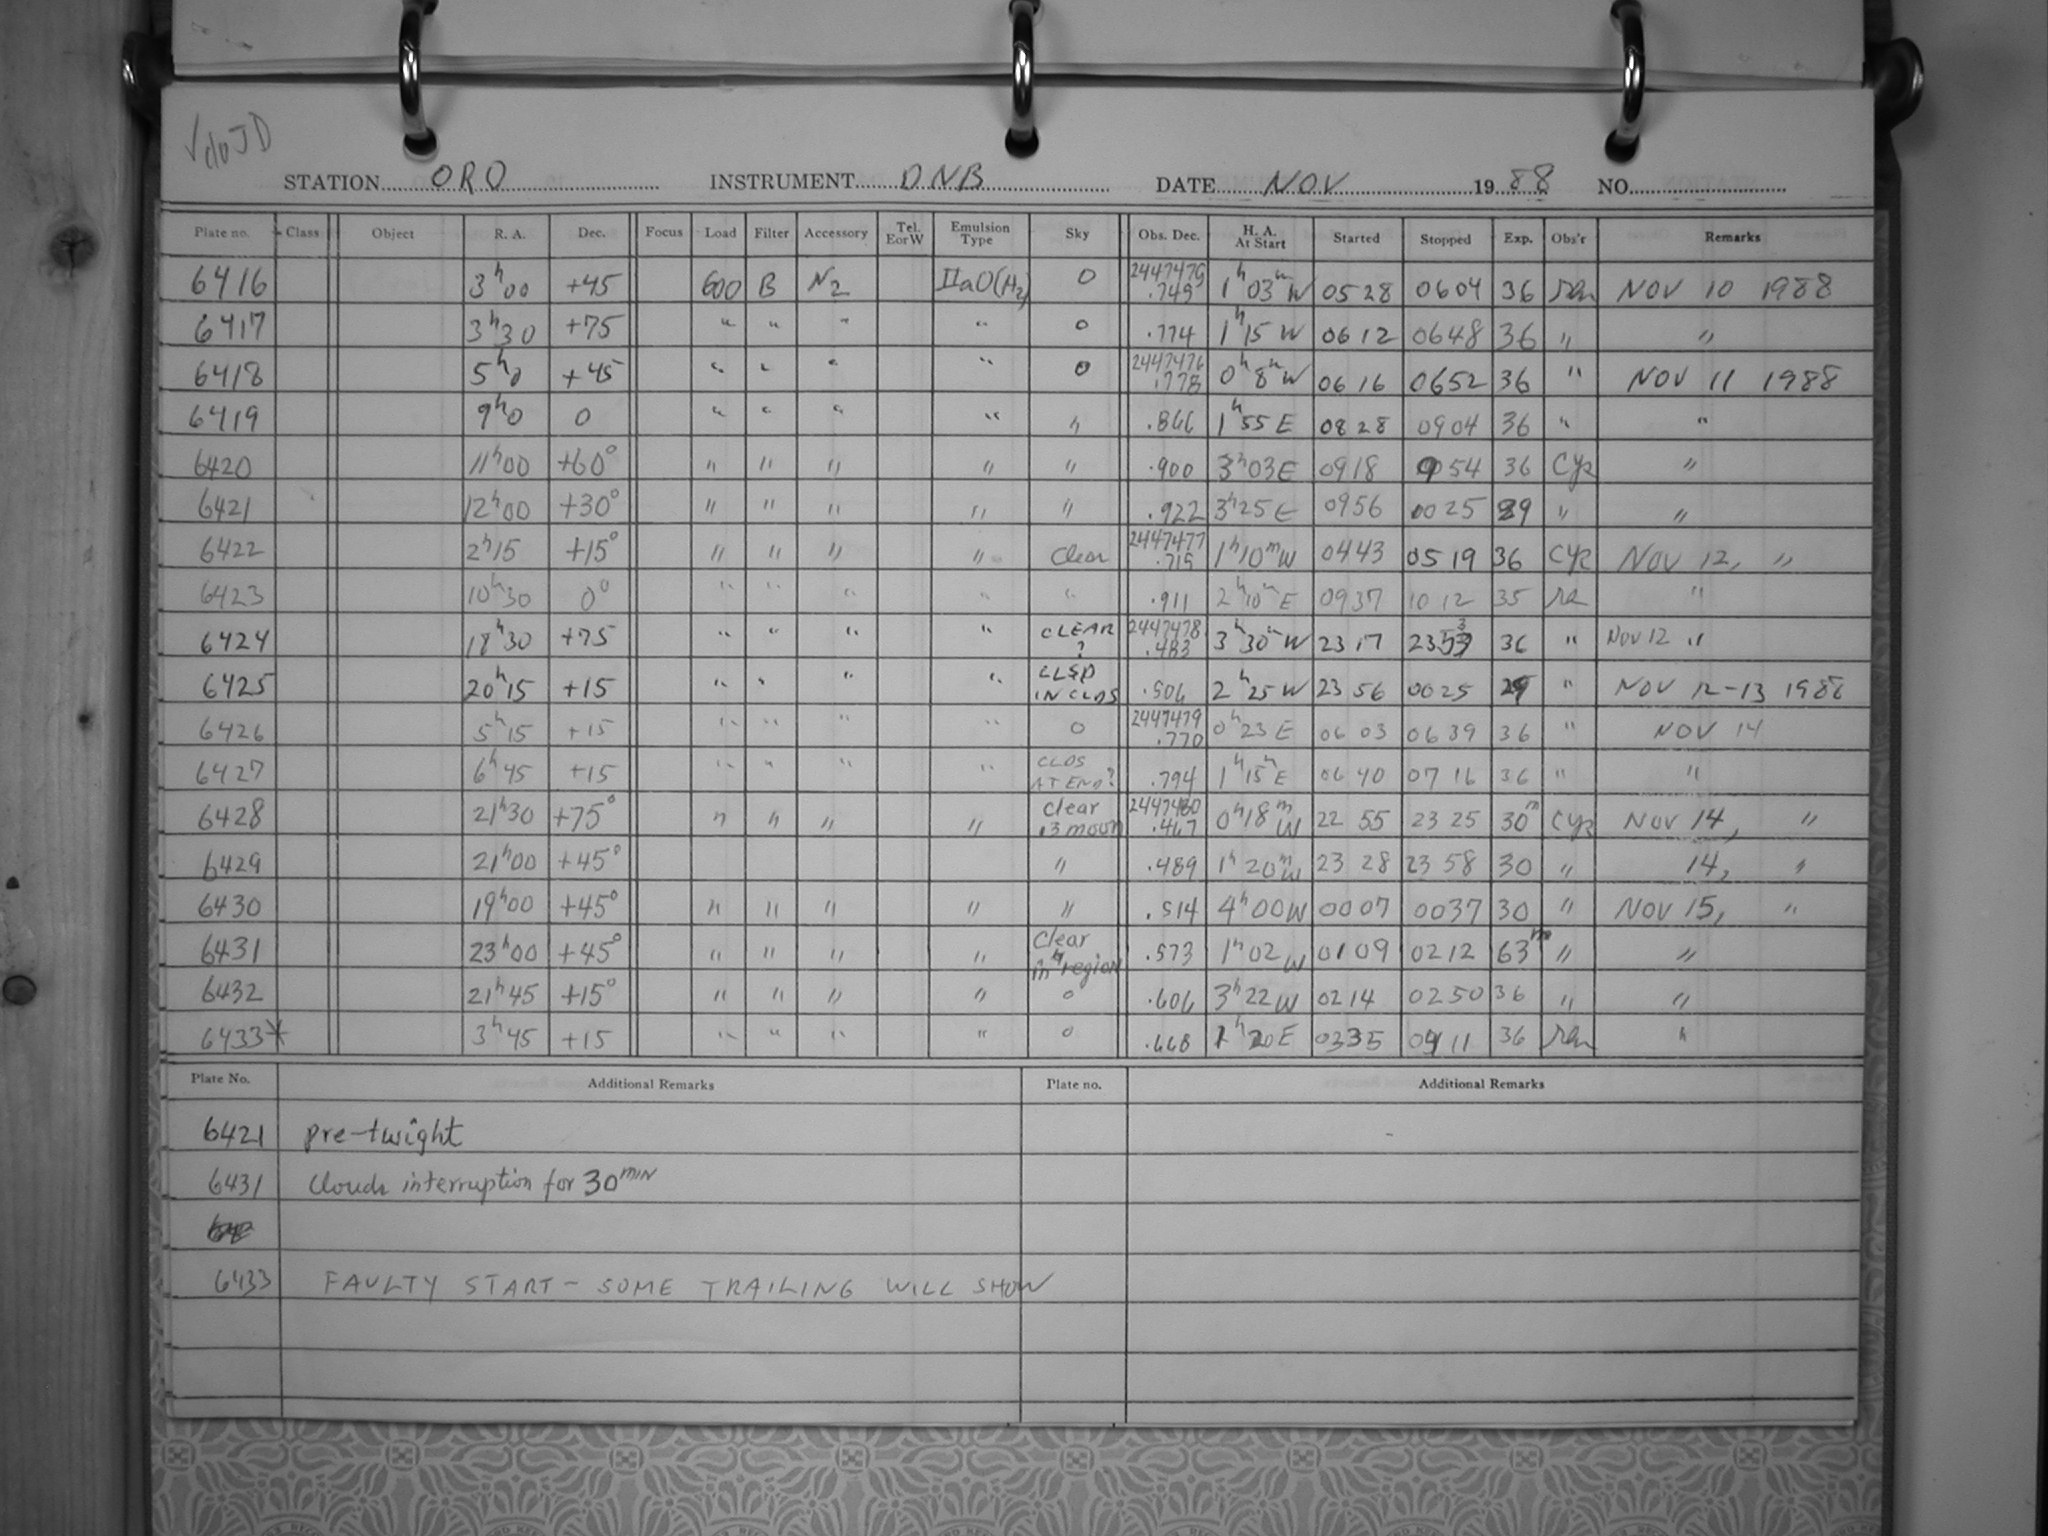 √do JD
STATION ORO INSTRUMENT DNB DATE NOV 1988 NO.
Plate no. Class Object R. A. Dec. Focus Load Filter Accessory Tel. EorW Emulsion Type Sky Obs. Dec. H. A. At Start Started Stopped Exp. Obs'r Remarks
6416 3h00 +45 600 B N2 IIaO(H2) 0 2447475 .749 1h03m W 0528 0604 36 NOV 10 1988
6417 3h30 +75 " " " " 0 .774 1h15 W 0612 0648 36 " "
6418 5h0 +45 " " " " 0 2447476 .778 0h8m W 0616 0652 36 " NOV 11 1988
6419 9h0 0 " " " " " .866 1h55 E 0828 0904 36 " "
6420 11h00 +60° " " " " " .900 3h03 E 0918 0954 36 Cyr "
6421 12h00 +30° " " " " " .922 3h25 E 0956 0025 29 " "
6422 2h15 +15° " " " " Clear 2447477 .715 1h10m W 0443 0519 36 Cyr NOV 12, "
6423 10h30 0° " " " " " .911 2h10m E 0937 1012 35 "
6424 18h30 +75 " " " " CLEAR ? 2447478 .483 3h30m W 2317 2353 36 " NOV 12 "
6425 20h15 +15 " " " " CLSD IN CLDS .506 2h25 W 2356 0025 29 " NOV 12-13 1988
6426 5h15 +15 " " " " 0 2447479 .770 0h23 E 0603 0639 36 " NOV 14
6427 6h45 +15 " " " " CLDS AT END? .794 1h15m E 0640 0716 36 " "
6428 21h30 +75° " " " " Clear .3 moon 2447480 .467 0h18m W 2255 2325 30m Cyr NOV 14, "
6429 21h00 +45° " .489 1h20m W 2328 2358 30 " 14, "
6430 19h00 +45° " " " " " .514 4h00 W 0007 0037 30 " NOV 15, "
6431 23h00 +45° " " " " Clear in region .573 1h02 W 0109 0212 63m " "
6432 21h45 +15° " " " " 0 .606 3h22 W 0214 0250 36 " "
6433* 3h45 +15 " " " " 0 .668 1h20 E 0335 0411 36 "
Plate No. Additional Remarks Plate no. Additional Remarks
6421 pre-twight
6431 Clouds interruption for 30 MIN
6433 FAULTY START - SOME TRAILING WILL SHOW